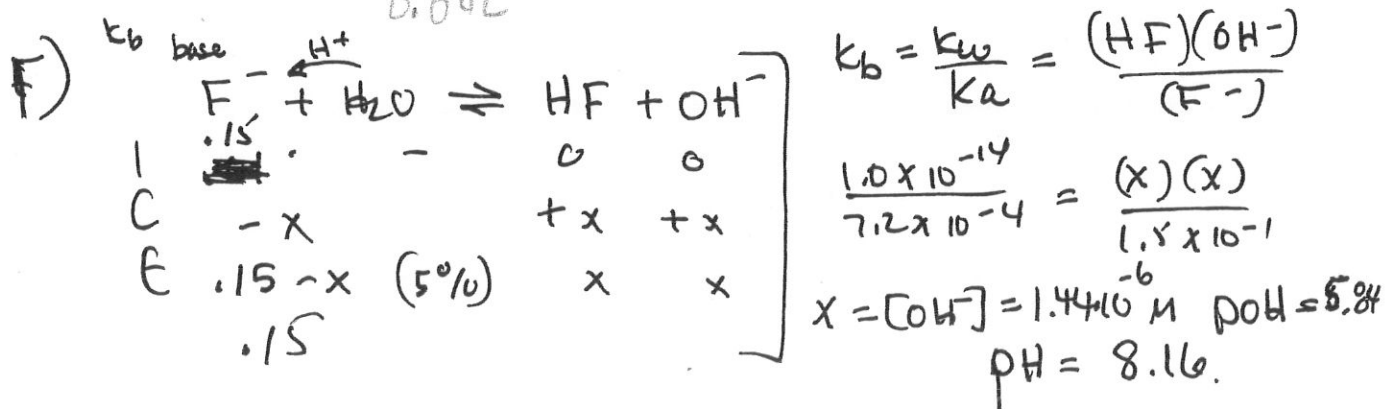 0.042
F) Kb base H+
F⁻ + H₂O ⇌ HF + OH⁻
.15
I - 0 0
C - x + x + x
E .15 - x (5%) x x
.15
Kb = Kw/Ka = (HF)(OH-)/(F-)
1.0 x 10⁻¹⁴/7.2 x 10⁻⁴ = (x)(x)/1.5 x 10⁻¹
x = [OH⁻] = 1.44·10⁻⁶ M pOH = 5.84
pH = 8.16.